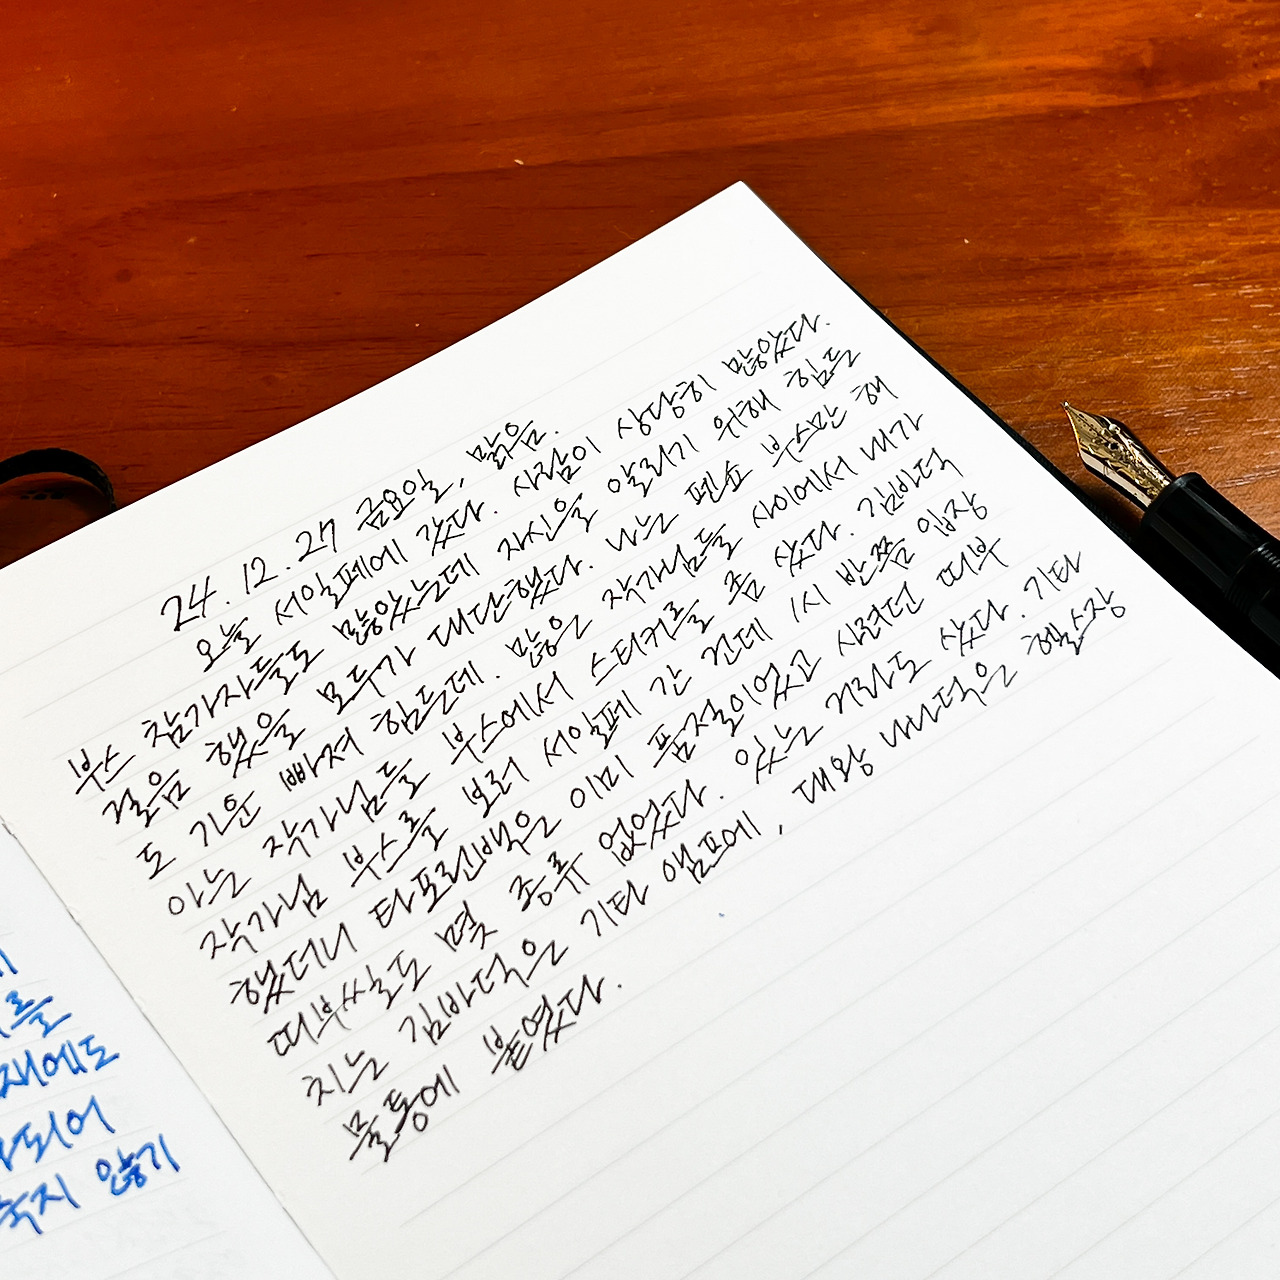 24. 12. 27 금요일, 맑음.
오늘 서일페에 갔다. 사람이 상당히 많았다.
부스 참가자들도 많았는데 자신을 알리기 위해 힘든
걸음 했을 모두가 대단했다. 나는 펜쇼 부스만 해
도 기운 빠져 힘든데. 많은 작가님들 사이에서 내가
아는 작가님들 부스에서 스티커를 좀 샀다. 김바덕
작가님 부스를 보러 서일페 간 건데 1시 반쯤 입장
했더니 타포린백은 이미 품절이었고 사려던 떠부
떠부씰도 몇 종류 없었다. 있는 거라도 샀다. 기타
치는 김바덕은 기타 앰프에, 대왕 나나덕은 헬스장
물통에 붙였다.
를
재에도
되어
지 않기